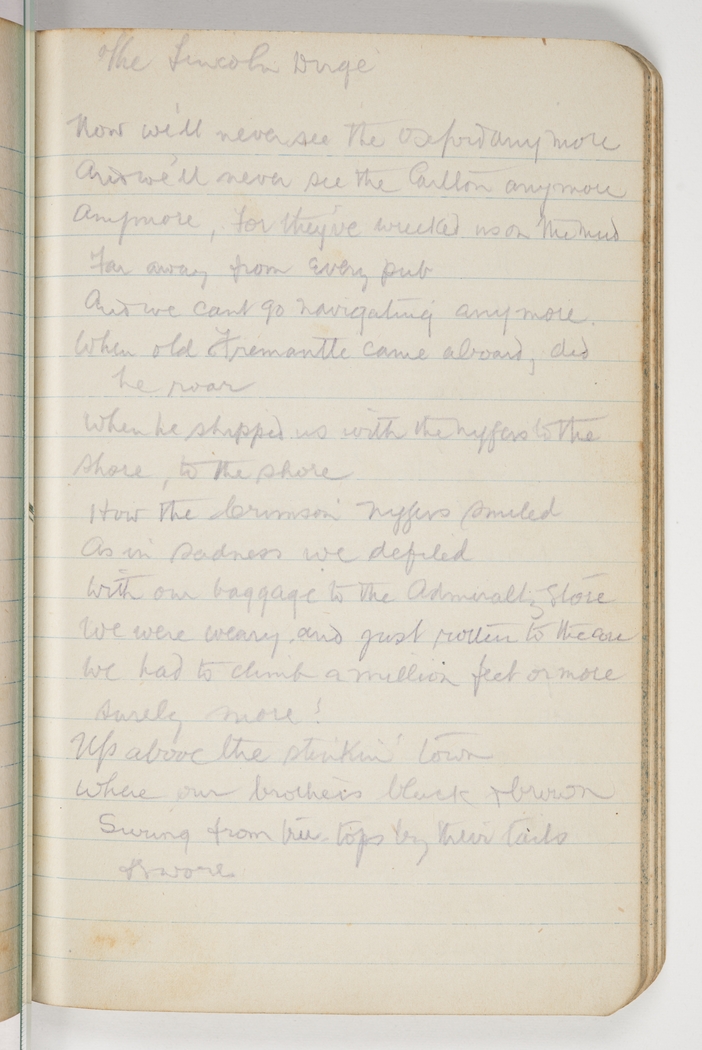 The Lincoln Dirge
Now we'll never see the Oxford any more
And we'll never see the Carlton anymore
Anymore, for they've us on the
Far away from every pub
And we cant go navigating any more.
When old Fremantle came aboard, did
he roar
When he shipped us with the to the
shore, to the shore
How the Crimson smiled
As in sadness we defiled
With our baggage to the Admiralty Store
We were weary and just rotten to the core
We had to climb a million feet or more
Surely more!
Up above the stinkin' town
Where our brothers black & brown
Swing from tree-tops by their tails
& swore